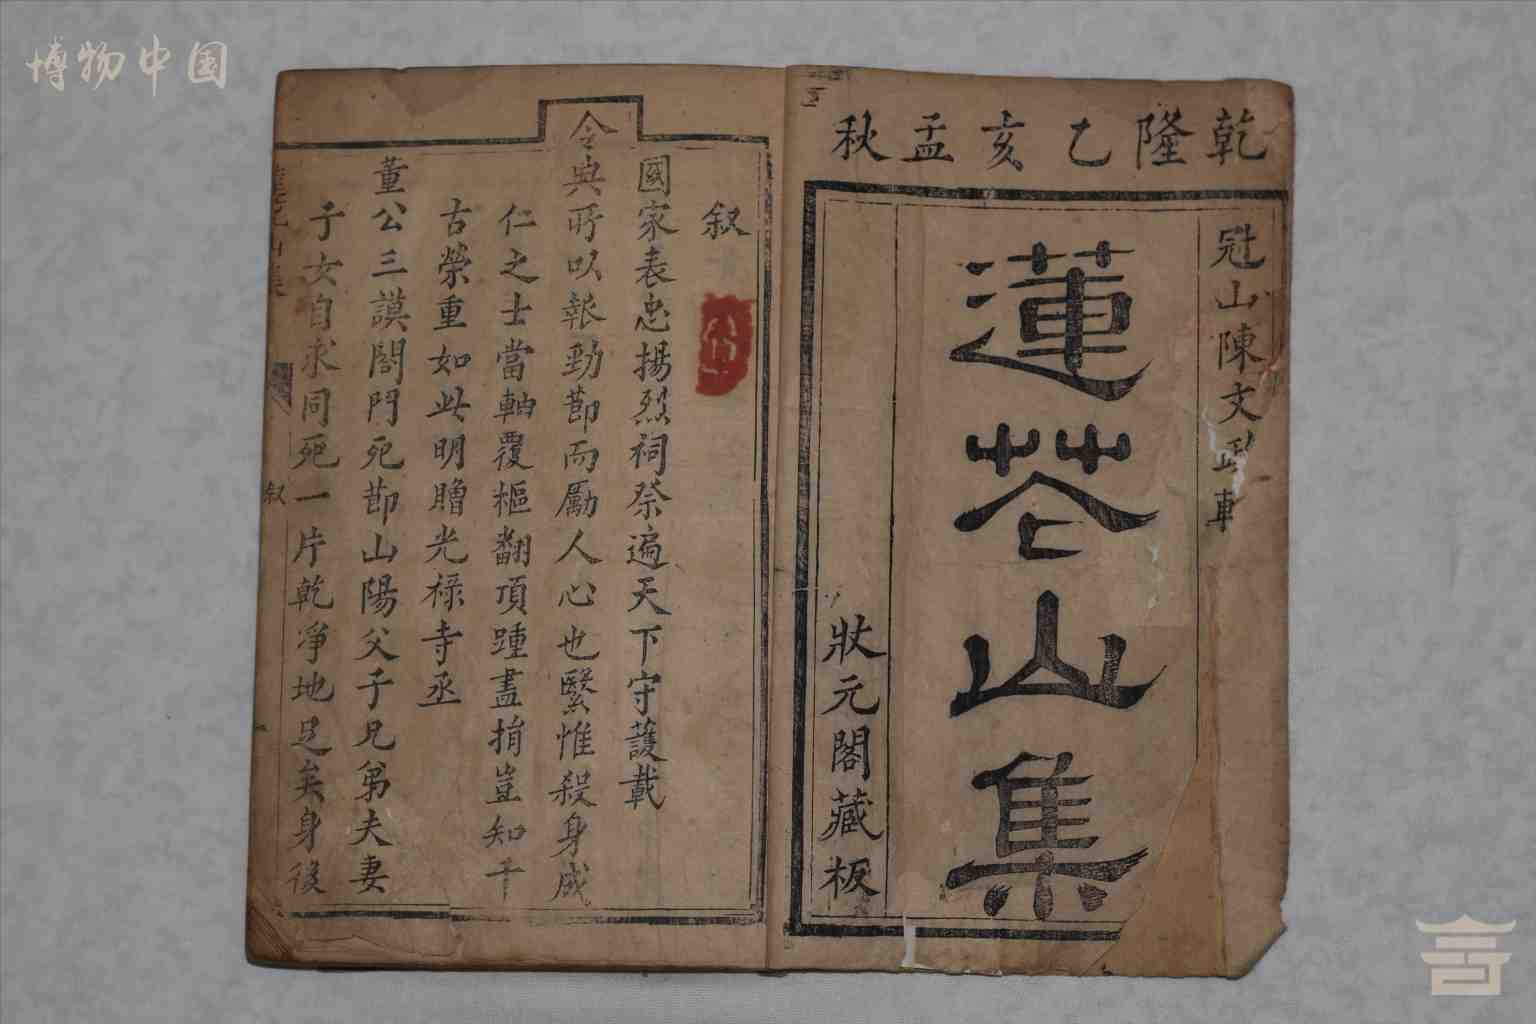 博物中国
乾隆乙亥孟秋
冠山陳文
蓮花山集
狀元閣藏板
叙
國家表忠揚烈祠祭遍天下守護載
令典所以報勁節而勵人心也繄惟殺身成
仁之士當軸覆樞翻頂踵盡捐豈知千
古榮重如此明贈光祿寺丞
董公三謨閤門死節山陽父子兄弟夫妻
子女自求同死一片乾淨地足矣身後
叙